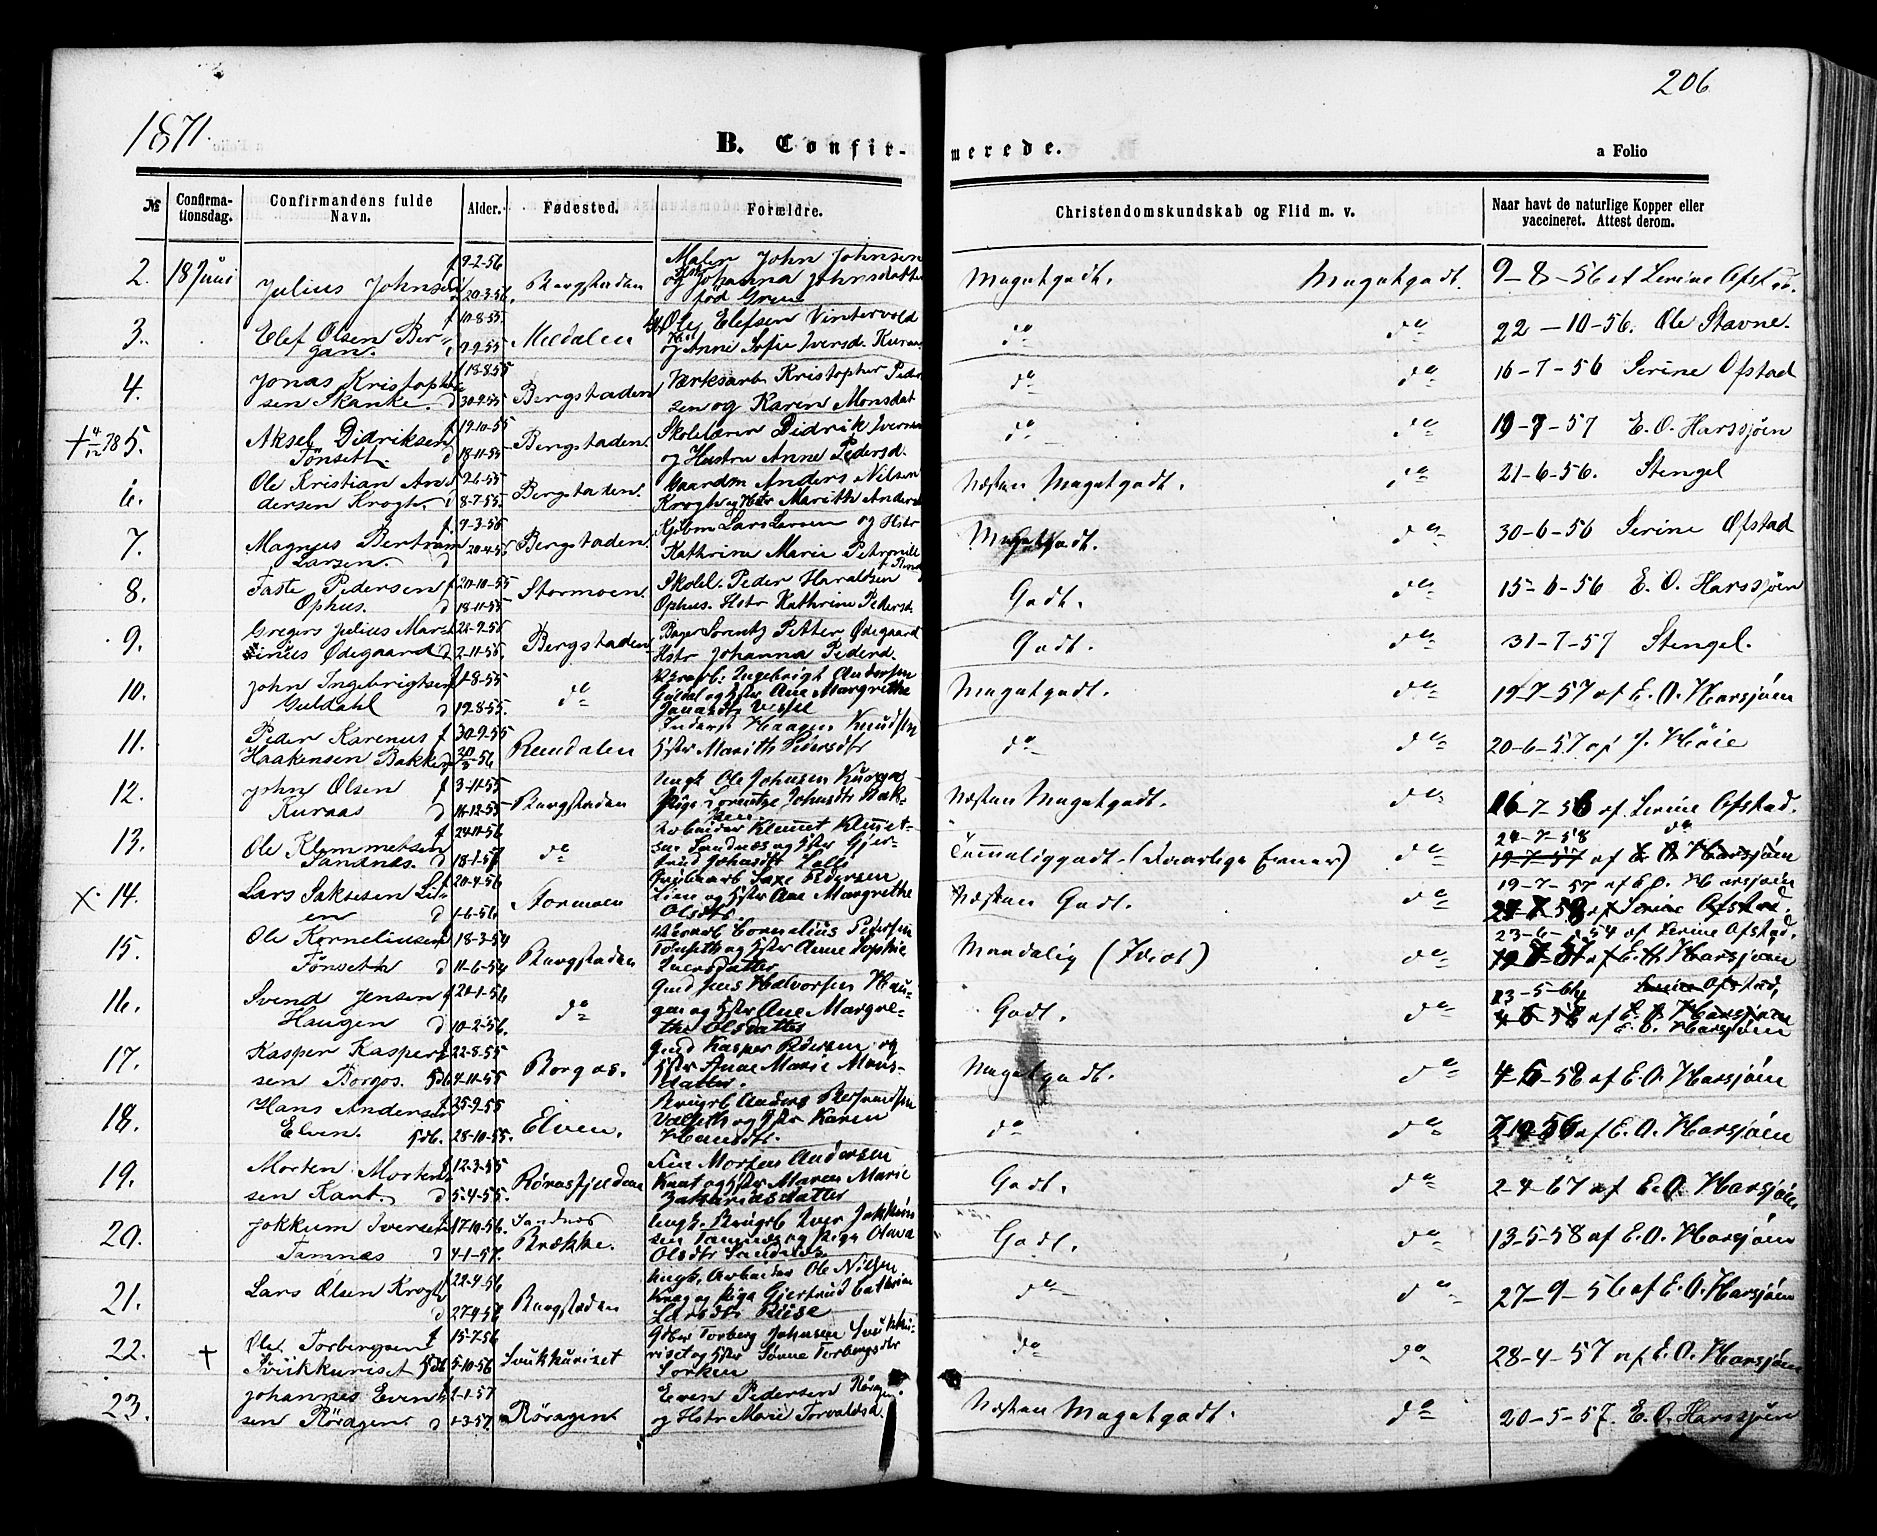 206
1871.
B. Confir-
merede.
a Folio
№
Confirma-
tionsdag.
Confirmandens fulde
Navn.
Alder.
Fødested.
Forældre.
Christendomskundskab og Flid m. v.
Naar havt de naturlige Kopper eller
vaccineret. Attest derom.
2. 18 Juni Julius Johnsen f 9-2-56 d 20-3-56. Bergstaden
Maler John Johnsen
og Johanna Johnsdatter
fød Grue
Megetgodt. Megetgodt. 9-8-56 af Serine Ofstad.
3. Elef Olsen Ber-
gan. f 10-8-55. d 9-9-55 Mæddalen
Ole Elefsen Vintervold
og Anne Sofie Iversd. Kuraas
do do 22-10-56. Ole Stavne.
4. Jonas Kristopher-
sen Skanke. f 18-8-55 d 30-9-55 Bergstaden
Værksarb Kristopher Peder
sen og Karen Monsdat
do do 16-7-56 Serine Ofstad
+ 4/12 78 5. Aksel Didriksen
Tønsett. f 19-10-55 d 18-11-55 Bergstaden.
Skolelærer Didrik Iversen
og Hustru Anne Pedersd.
do do 19-7-57 E. O. Harssjøen
6. Ole Kristian An-
dersen Krogh. d 8-7-55. Bergstaden.
Gaardm Anders Nilsen
Krogh og Hstr Marith Andersd
Næsten Megetgodt. do 21-6-56. Stengel
7. Magnus Bertram
Larsen. f 7-3-56 d 20-4-56 Bergstaden.
Kjøbm Lars Larsen og Hstr
Kathrine Marie Petronill
Megetgodt. do 30-6-56 Serine Ofstad
8. Faste Pedersen
Ophus. f 20-10-55 d 18-11-55 Stormoen.
Skolel. Peder Haraldsen
Ophus. Hstr Kathrine Pedersd.
Godt. do 15-6-56 E. O. Harssjøen
9. Gregers Julius Mar-
tinus Ødegaard d 2-11-55. Bergstaden
Bager Lorentz Petter Ødegaard
Hstr Johanna Pederd.
Godt. do 31-7-57 Stengel.
10. John Ingebrigtsen
Guldahl f 1-8-55 d 19-8-55 do
Ingebrigt Andersen
Guldal og Hstr Ane Margrethe
Megetgodt. do 19-7-57 af E. O. Harsjøen
11. Peder Karenus
Haakensen Bakken f 30-9-55 d 30/3-56 Rendalen
Inderst Haagen Knudsen
Hstr Marith Pedersdtr
do do 20-6-57 af J. Høie
12. John Olsen
Kuraas f 3-11-55 d 16-12-55 Bergstaden
Ungk Ole Johnsen Kuraas
Pige Lorentze Johnsdtr Bak-
ken
Næsten Megetgodt. do 16-7-56 af Serine Ofstad.
13. Ole Klemmetsen
Sandnæs. f 24-11-56 d 18-1-57 do
Arbeider Klemmet Klemet-
sen Sandnæs og Hstr Gjer-
trud Johnsdtr
Temmeliggodt. (Daarlige Evner) do 24-7-58 do
19-7-57 af E. O. Harsjøen
× 14. Lars Saksesen Li-
en f 20-4-56 d 1-6-56 Stormoen
Saxe Pedersen
Lien og Hstr Ane Margrethe
Olsdtr
Næsten Godt. do 19-7-57 af E. O. Harsjøen
24-7-58 af Serine Ofstad.
15. Ole Korneliusen
Tønseth f 18-3-54 d 11-6-54 Bergstaden
Cornelius Pedersen
Tønseth og Hstr Anne Sophie
Iversdatter
Maadelig (Idiot) do 23-6-54 af Serine Ofstad.
19-7-57 af E. O. Harsjøen
16. Svend Jensen
Haugen f 21-1-56 d 10-2-56. do
Gmd Jens Halvorsen Hau-
gen og Hstr Ane Margre-
the Olsdatter
Godt. do 23-5-64 Serine Ofstad,
4-6-58 af E. O. Harsjøen
E. O. Harsjøen
17. Kasper Kasper-
sen Borgos. f 22-8-55 hdb 4-11-55 Borgos.
Gmd Kasper Pedersen og
Hstr Anne Marie Mons-
datter.
Megetgodt. do 4-6-58 af E. O. Harsjøen
18. Hans Andersen
Elven. f 25-9-55 hdb. 28-10-55. Elven.
Brugsb Anders
Valseth og Hstr Karen
Hansdtr.
do do af E. O. Harsjøen
19. Morten Morten-
sen Kant. f 12-3-55 d 5-4-55. Rørosfjeldene
Morten Andersen
Kant og Hstr Maren Marie
Zakariasdatter
Godt. do 2-4-67 af E. O. Harsjøen
20. Jokkum Iversen
Tamnæs f 17-10-56. d 4-1-57. Sandnæs
Brække.
Ungk. Brugsb Iver Jokkum
sen Tamnæs og Pige Olava
Olsdtr Sandnæs
Godt. do 13-5-58 af E. O. Harsjøen
21. Lars Olsen Krogh
f 22-9-56 d 27-4-57 Bergstaden
Ungk, Arbeider Ole Nilsen
Krog og Pige Gjertrud Cathrine
Larsdtr Riise
do do 27-9-56 af E. O. Harsjøen
22. + Ole Torbergsen
Svukkuriset f 15-7-56 hdb 5-10-56 Svukkuriset
Torberg Johnsen Svukku-
riset og Hstr Sønne Torbergsdtr
Lorken
do do 28-4-57 af E. O. Harsjøen
23. Johannes Even-
sen Røragen. f 1-1-57 d 1-3-57 Røragen.
Even Pedersen Røragen.
og Hstr Marie Torvaldsd.
Næsten Megetgodt. do 20-5-57. E. O. Harssjøen